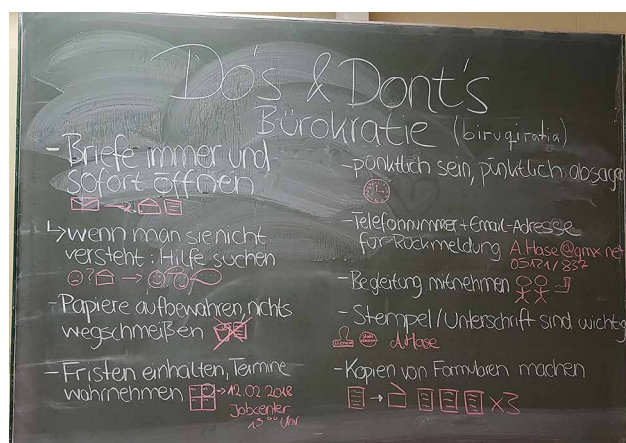 Do's & Dont's
Bürokratie (biruqiratia)
- Briefe immer und
sofort öffnen
↳ wenn man sie nicht
versteht: Hilfe suchen
- Papiere aufbewahren, nichts
wegschmeißen
- Fristen einhalten, Termine
wahrnehmen → 12.02.2018
Jobcenter
13⁰⁰ Uhr
- pünktlich sein, pünktlich absagen
- Telefonnummer + Email-Adresse
für Rückmeldung A.Hase@gmx.net
05121/837
- Begleitung mitnehmen
- Stempel/Unterschrift sind wichtig
A.Hase
- Kopien von Formularen machen
x3